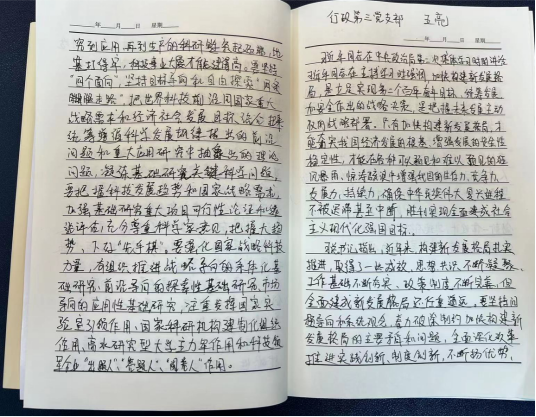 年 月 日 星期
究到应用再到生产的科研链条起始端,地
基打得牢,科技事业大厦才能建得高。要坚持
“四个面向”,坚持目标导向和自由探索“两条
腿走路”,把世界科技前沿同国家重大
战略需求和经济社会发展目标结合起来
统筹遵循科学发展规律提出的前沿
问题和重大应用研究中抽象出的理论
问题,凝练基础研究关键科学问题。
要把握科技发展趋势和国家战略需求,
加强基础研究重大项目可行性论证和遴
选评估,充分尊重科学家意见,把握大趋
势、下好“先手棋”。要强化国家战略科技
力量,有组织推进战略导向的体系化基
础研究、前沿导向的探索性基础研究、市场
导向的应用性基础研究,注重发挥国家实
验室引领作用、国家科研机构建制化组织
作用、高水平研究型大学主力军作用和科技领
军企业“出题人”、“答题人”、“阅卷人”作用。
行政第三党支部 王亮
年 月 日 星期
在中央政治局第二次集体学习时
在主持学习时强调,加快构建新发展格
局,是立足实现第二个百年奋斗目标、统筹发展
和安全作出的战略决策,是把握未来发展主动
权的战略部署。只有加快构建新发展格局,才
能夯实我国经济发展的根基、增强发展的安全性
稳定性,才能在各种可以预见和难以预见的狂
风暴雨、惊涛骇浪中增强我国的生存力、竞争力、
发展力、持续力,确保中华民族伟大复兴进程
不被迟滞甚至中断,胜利实现全面建成社会
主义现代化强国目标。
指出,近年来,构建新发展格局扎实
推进,取得了一些成效,思想共识不断凝聚、
工作基础不断夯实、政策制度不断完善,但
全面建成新发展格局还任重道远。要坚持问
题导向和系统观念,着力破除制约加快构建新
发展格局的主要矛盾和问题,全面深化改革
推进实践创新、制度创新,不断扬优势、